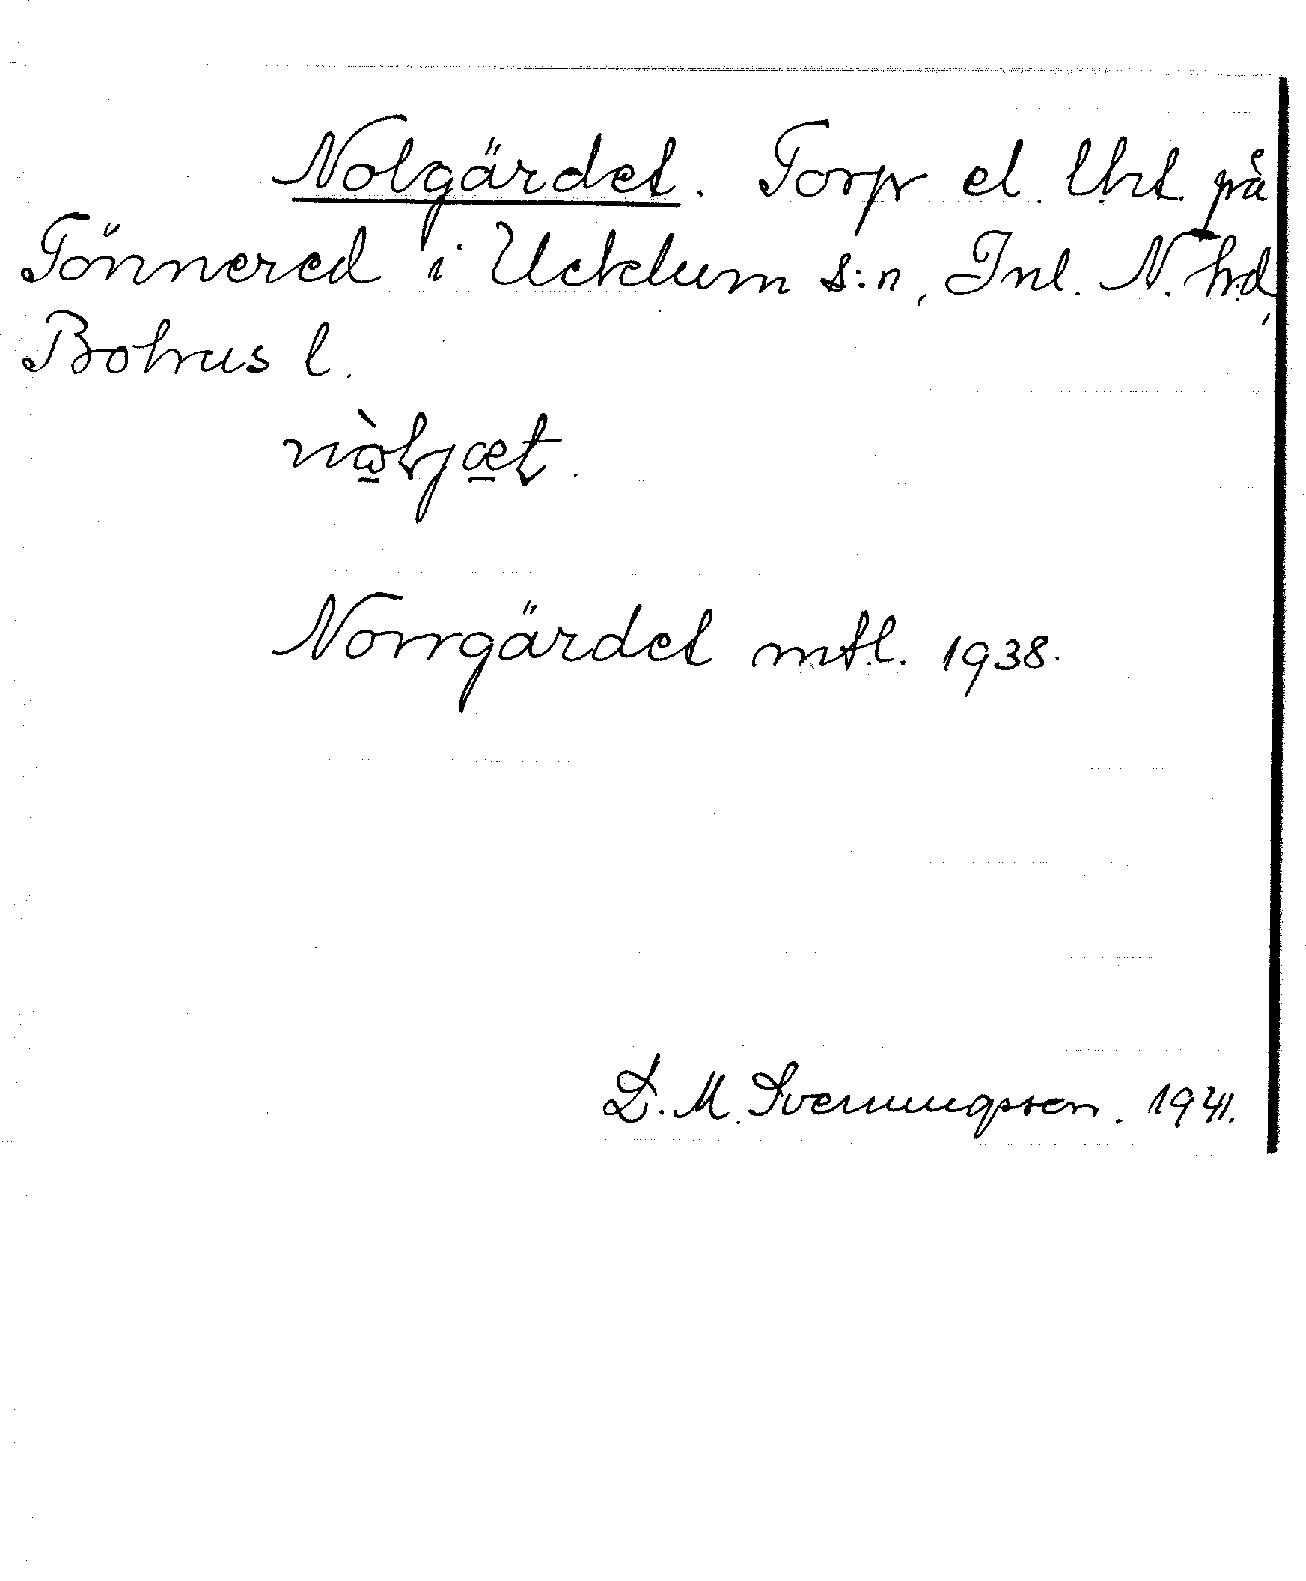 Nolgärdet. Torp el. lht på
Tönnered i Ucklum s:n, Inl. N. hd,
Bohus l.
Norrgärdet mtl. 1938.
D. M. Svenningsson. 1941.